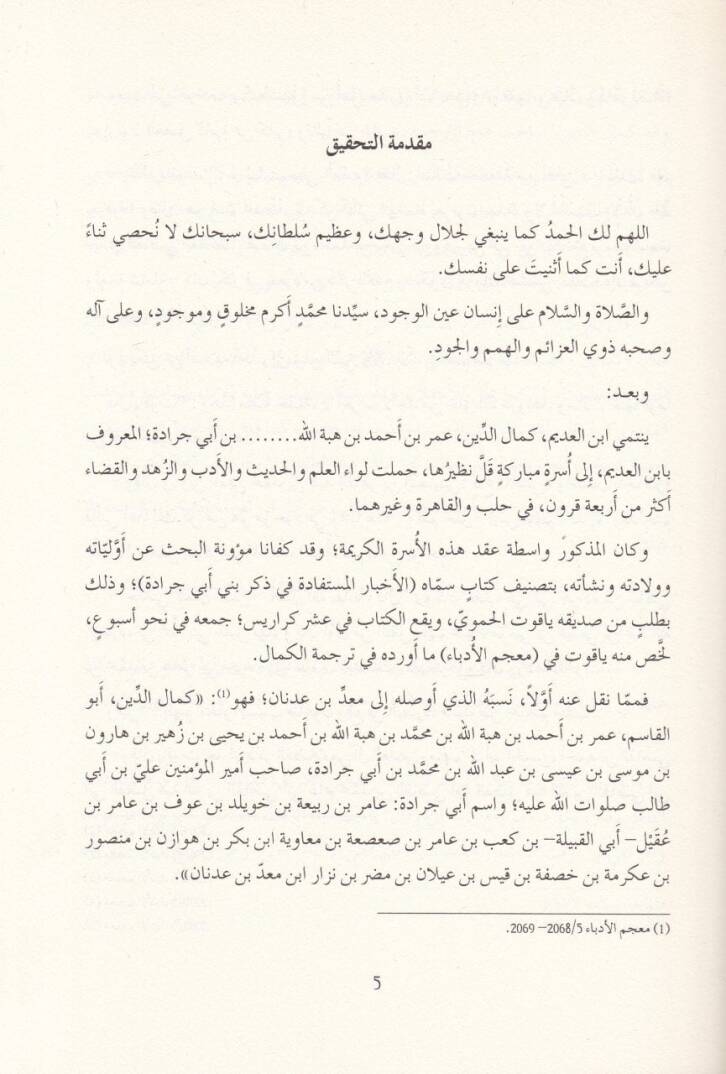 مقدمة التحقيق
اللهم لك الحمدُ كما ينبغي لجلال وجهك، وعظيم سُلطانِك، سبحانك لا نُحصي ثناءً
عليك، أَنت كما أَثنيتَ على نفسك.
والصَّلاة والسَّلام على إِنسان عين الوجود، سيِّدنا محمَّدٍ أَكرم مخلوقٍ وموجودٍ، وعلى آله
وصحبه ذوي العزائم والهمم والجودِ.
وبعـد:
ينتمي ابن العديم، كمال الدِّين، عمر بن أَحمد بن هبة الله........ بن أَبي جرادة؛ المعروف
بابن العديم، إِلى أُسرةٍ مباركةٍ قَلَّ نظيرُها، حملت لواء العلم والحديث والأَدب والزُهد والقضاء
أَكثر من أَربعة قرون، في حلب والقاهرة وغيرهما.
وكان المذكورُ واسطة عقد هذه الأُسرة الكريمة؛ وقد كفانا مؤونة البحث عن أَوَّليّاته
وولادته ونشأته، بتصنيف كتابٍ سمّاه (الأَخبار المستفادة في ذكر بني أَبي جرادة)؛ وذلك
بطلبٍ من صديقه ياقوت الحمويّ، ويقع الكتاب في عشر كراريس؛ جمعه في نحو أسبوعٍ،
لخَّص منه ياقوت في (معجم الأُدباء) ما أَورده في ترجمة الكمال.
فممّا نقل عنه أَوَّلاً، نَسبَهُ الذي أَوصله إِلى معدِّ بن عدنان؛ فهو(1): «كمال الدِّين، أَبو
القاسم، عمر بن أَحمد بن هبة الله بن محمَّد بن هبة الله بن أَحمد بن يحيى بن زُهير بن هارون
بن موسى بن عيسى بن عبد الله بن محمَّد بن أَبي جرادة، صاحب أَمير المؤمنين عليّ بن أَبي
طالب صلوات الله عليه؛ واسم أَبي جرادة: عامر بن ربيعة بن خويلد بن عوف بن عامر بن
عُقَيْل– أَبي القبيلة– بن كعب بن عامر بن صعصعة بن معاوية ابن بكر بن هوازن بن منصور
بن عكرمة بن خصفة بن قيس بن عيلان بن مضر بن نزار ابن معدّ بن عدنان».
(1) معجم الأدباء 2068/5– 2069.
5